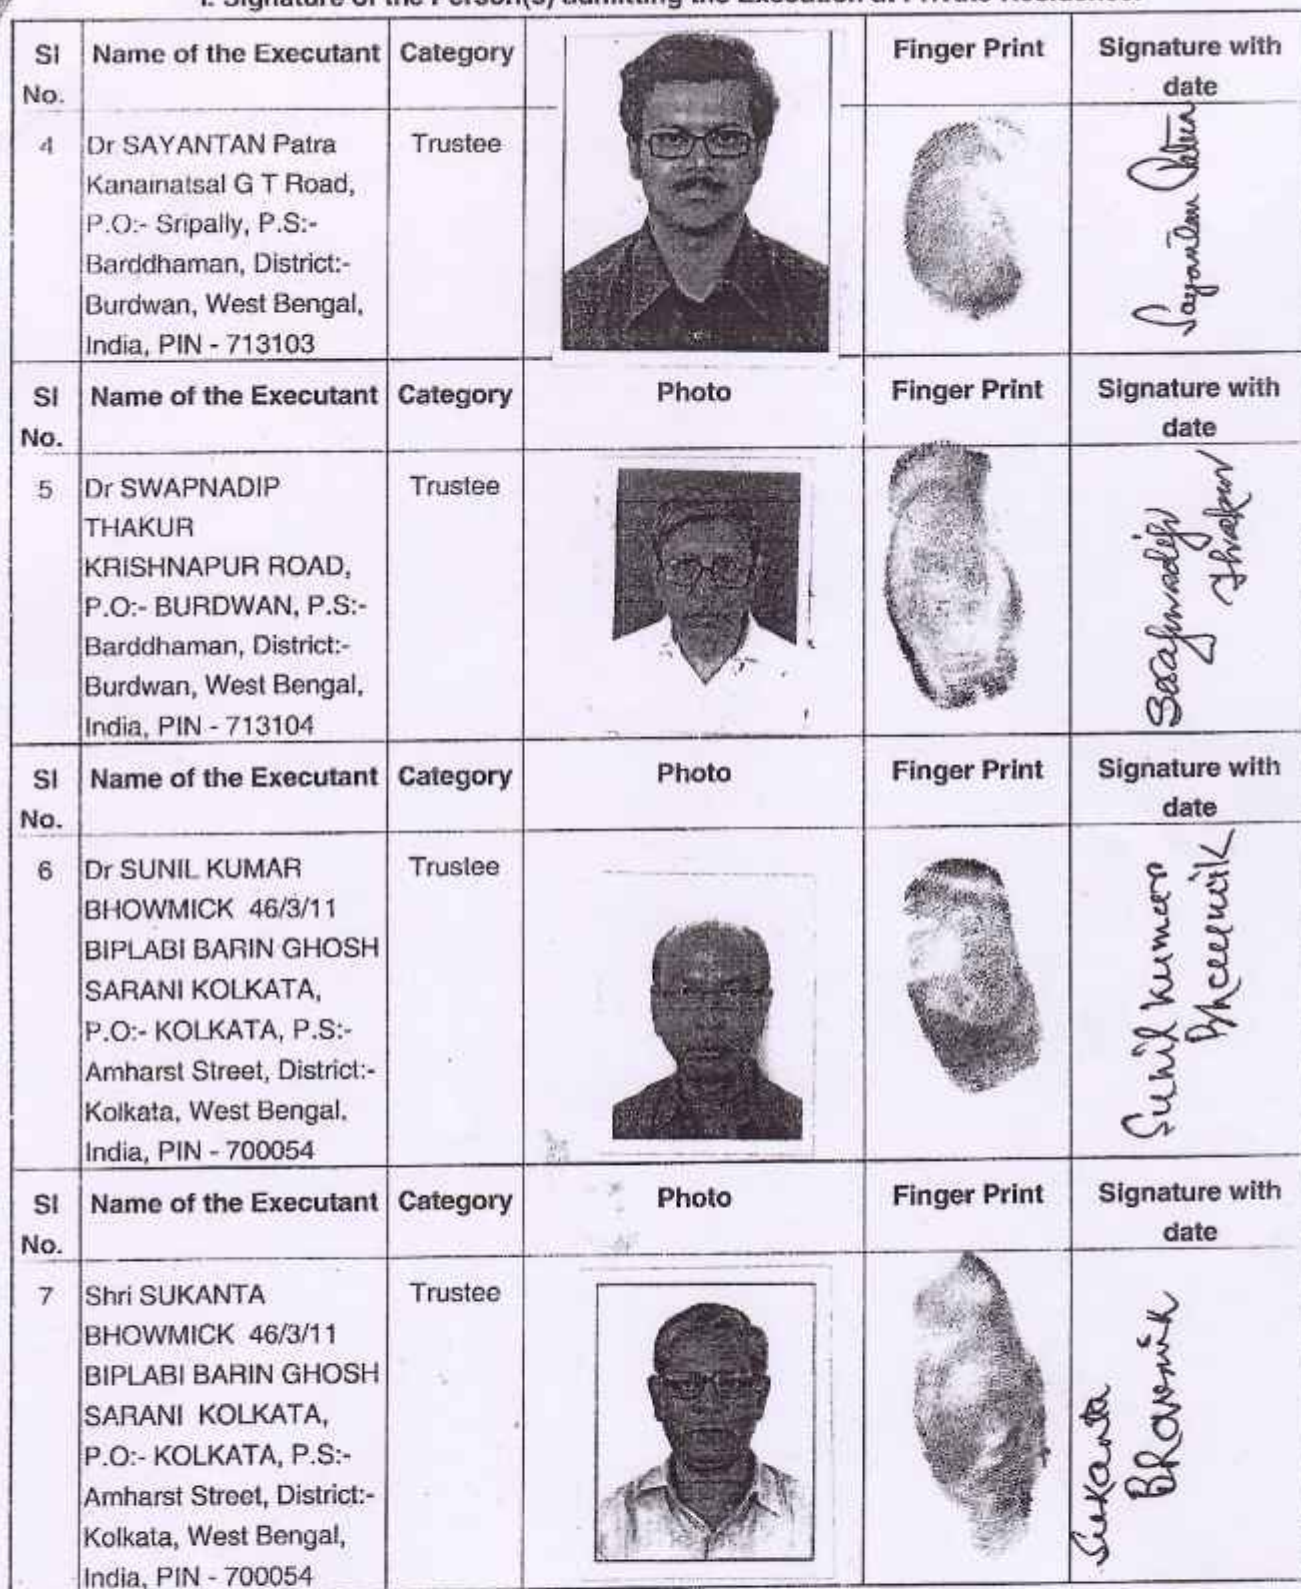 I. Signature of the Person(s) admitting the Execution at Private Residence.
Sl No. Name of the Executant Category Finger Print Signature with date
4 Dr SAYANTAN Patra Trustee
Kanainatsal G T Road,
P.O:- Sripally, P.S:-
Barddhaman, District:-
Burdwan, West Bengal,
India, PIN - 713103
Sayantan Patra
Sl No. Name of the Executant Category Photo Finger Print Signature with date
5 Dr SWAPNADIP Trustee
THAKUR
KRISHNAPUR ROAD,
P.O:- BURDWAN, P.S:-
Barddhaman, District:-
Burdwan, West Bengal,
India, PIN - 713104
Swapnadip
Thakur
Sl No. Name of the Executant Category Photo Finger Print Signature with date
6 Dr SUNIL KUMAR Trustee
BHOWMICK 46/3/11
BIPLABI BARIN GHOSH
SARANI KOLKATA,
P.O:- KOLKATA, P.S:-
Amharst Street, District:-
Kolkata, West Bengal,
India, PIN - 700054
Sunil Kumar
Bhowmik
Sl No. Name of the Executant Category Photo Finger Print Signature with date
7 Shri SUKANTA Trustee
BHOWMICK 46/3/11
BIPLABI BARIN GHOSH
SARANI KOLKATA,
P.O:- KOLKATA, P.S:-
Amharst Street, District:-
Kolkata, West Bengal,
India, PIN - 700054
Sukanta
Bhowmik